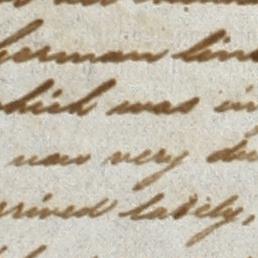 German line
which was in
now very du
rrived lately,